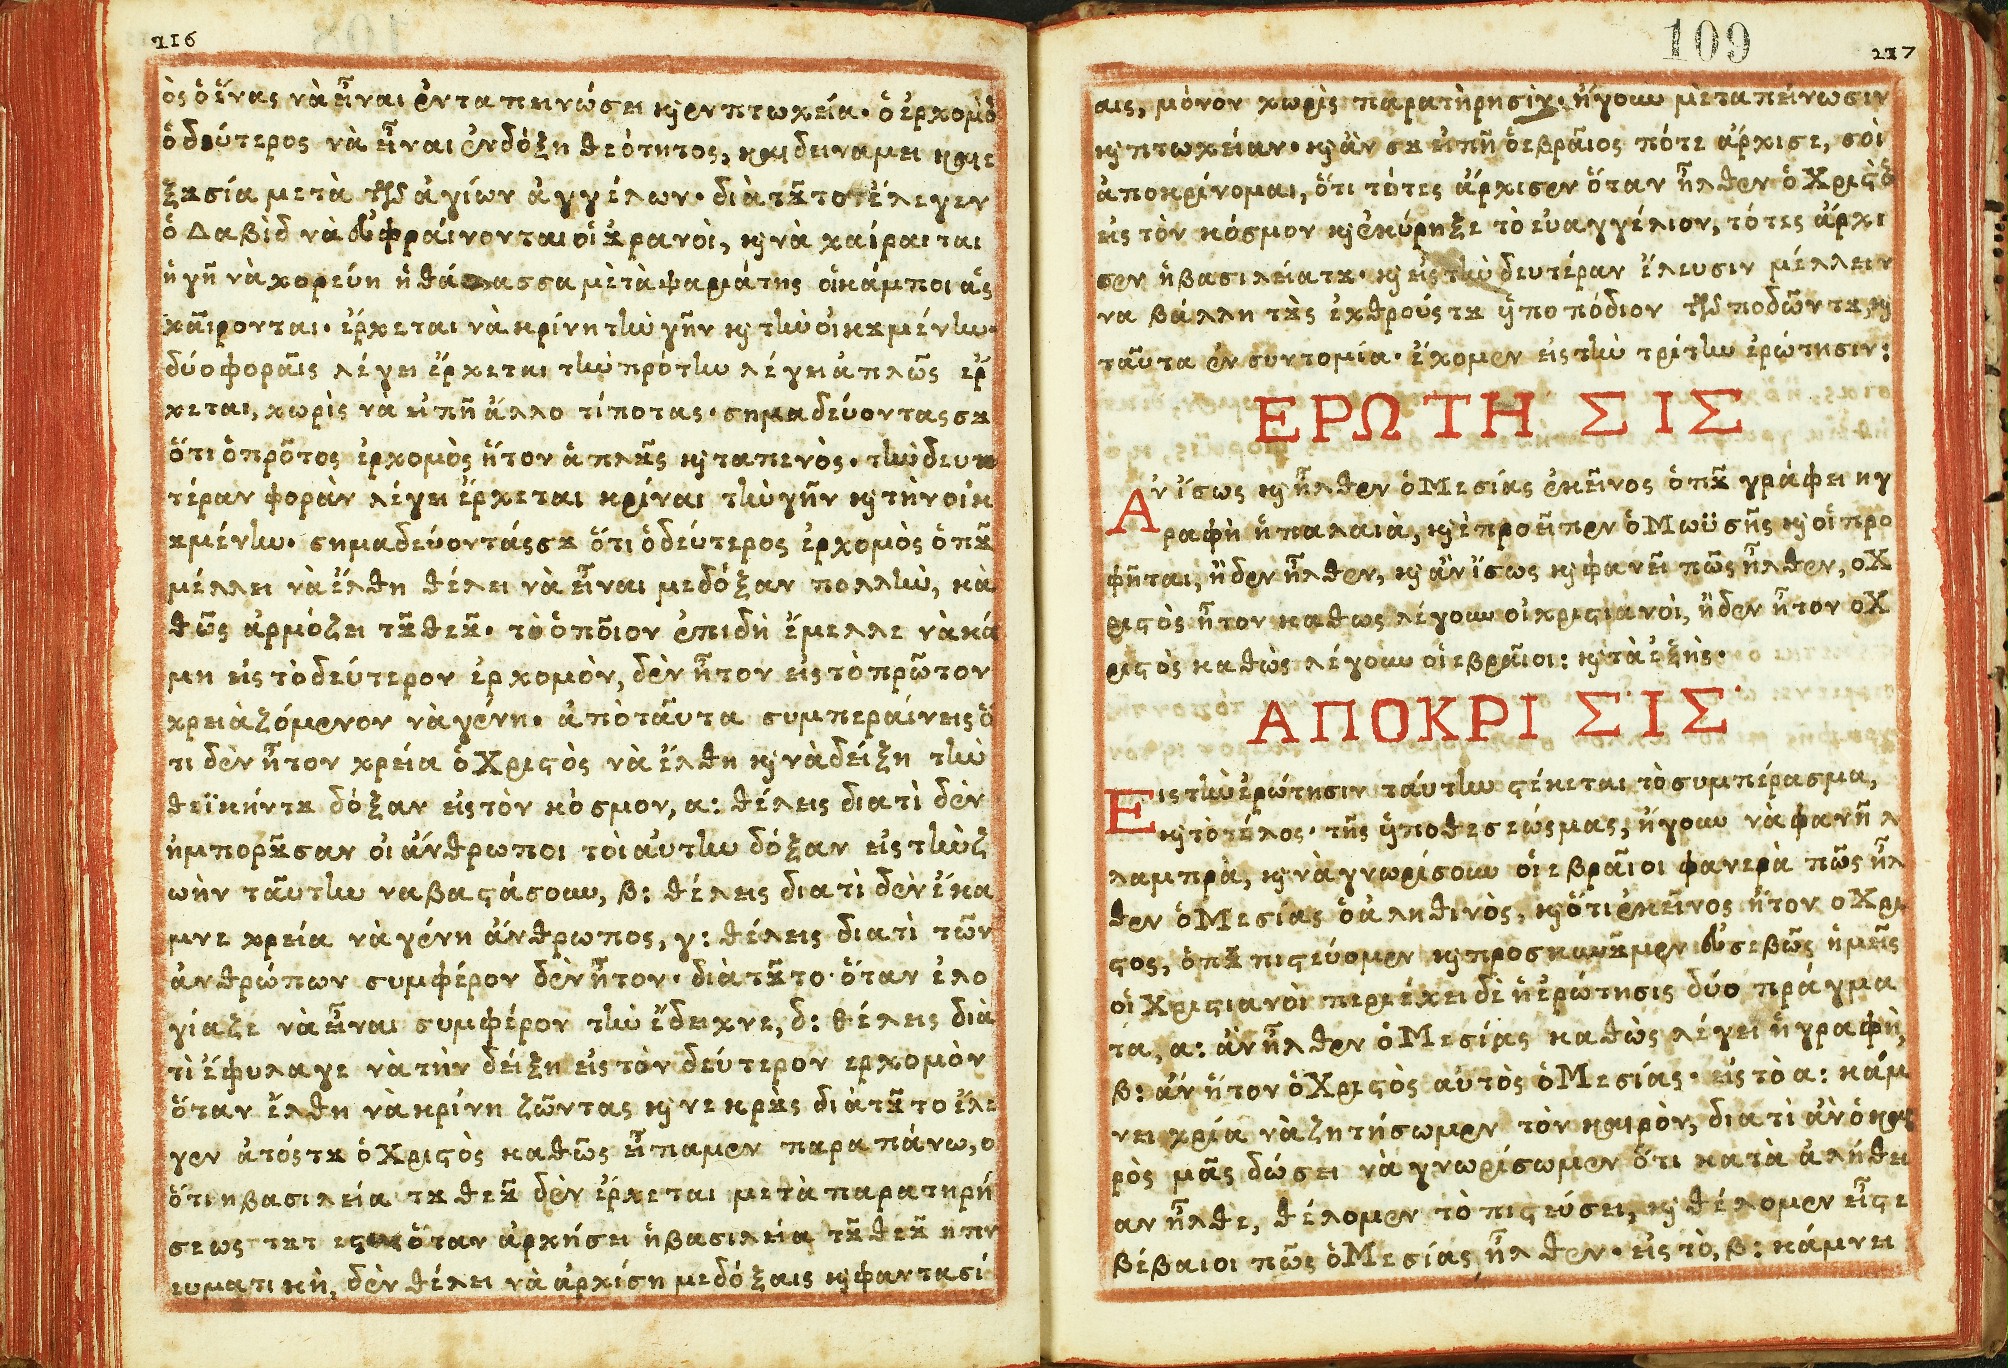 216
ὸς ὁ ἕνας νὰ εἶναι ἐν ταπεινώσει κ̀ ἐν πτωχεία· ὁ ἐρχομὸ
ὁ δεύτερος νὰ εἶναι ἐν δόξη θεότητος, καὶ δειναμει καὶ ε
ξȣσία μετὰ τῶν ἁγίων ἀγγέλων· διὰ τȣ͂το ἔλεγεν
ὁ Δαβὶδ νὰ εὐφράινονται οἱ ȣ̓ρανοὶ, κ̀ νὰ χαίραιται
ἡ γῆ νὰ χορεύη ἡ θάλασσα μὲτὰ ψαριάτης οἱ κάμποι ἁς
χαῖρονται· ἐρχεται νὰ κρίνη τὴν γῆν κ̀ τὴν οἰκȣμένην·
δύο φοραῖς λέγει ἔρχεται τὴν πρότην λέγει ἁπλῶς ἐρ
χεται, χωρὶς νὰ εἰπῆ ἄλλο τίποτας· σημαδεύοντας σȣ
ὅτι ὁ πρῶτος ἐρχομὸς ἤτον ἁπλȣ͂ς κ̀ ταπενὸς· τὴν δευ
τέραν φορὰν λέγει ἔρχεται κρίναι τὴν γῆν κ̀ τὴν οἰκ
ȣμένην· σημαδεύοντάς σȣ ὅτι ὁ δεύτερος ἐρχομὸς ὁπȣ͂
μέλλει νὰ ἔλθη θέλει νὰ εἶναι με δόξαν πολλὴν, κα
θῶς ἁρμόζει τȣ͂ θεȣ͂· τὸ ὁποῖον ἐπιδὴ ἔμελλε νὰ κά
μη εἰς τὸ δεύτερον ἐρχομὸν, δὲν ἦτον εἰς τὸ πρῶτον
χρειὰζόμενον νὰ γένη· ἀπὸ ταῦτα συμπεραίνεις ὅ
τι δὲν ἦτον χρεία ὁ Χριϛὸς νὰ ἔλθη κ̀ νὰ δείξη τὴν
θεϊκήν τȣ δόξαν εἰς τὸν κὸσμον, α: θέλεις διατὶ δὲν
ἡμπορȣ͂σαν οἱ ἄνθρωποι τοιαύτην δόξαν εἰς τὴν ζ
ωὴν ταῦτην να βαϛάσουν, β: θέλεις διατὶ δὲν ἔκα
μνε χρεία νὰ γένη ἄνθρωπος, γ: θέλεις διατὶ τῶν
ἀνθρώπων συμφέρον δὲν ἦτον· διὰ τȣ͂το· ὅταν ἐλο
γίαζε νὰ εἶναι συμφέρον τὴν ἔδειχνε, δ: θέλεις διὰ
τὶ ἐφυλαγε νὰ τὴν δείξη εἰς τὸν δεύτερον ερχομὸν
ὅταν ἔλθη νὰ κρίνη ζῶντας κ̀ νεκρȣ̀ς διὰ τȣ͂το ἔλε
γεν ἀτός τȣ ὁ Χριϛὸς καθῶς εἶπαμεν παραπάνω, ο
ὅτι η βασιλεία τȣ θεȣ͂ δὲν ἐρχεται μετὰ παρατηρή
σεως ὅταν ἀρχήσει ἡ βασιλεία τȣ͂ θεȣ͂ η πν
ευματικὴ, δὲν θέλει νὰ ἀρχίση με δόξαις κ̀ φαντασί
109
217
αις, μόνον χωρὶς παρατὴρησὶν· ἤγουν μὲ ταπείνωσιν
κ̀ πτωχείαν· κ̀ ἂν σȣ εἰπῆ ὁ εβραῖος πότε ἄρχισε, σοὶ
ἀποκρίνομαι, ὅτι τότες ἄρχισεν ὅταν ἦλθεν ὁ Χριϛὸ
εἰς τὸν κόσμον κ̀ ἐκύρηξε τὸ ευαγγέλιον, τότες ἄρχι
σεν ἡ βασιλεία τȣ· κ̀ εἰς τὴν δευτέραν ἔλευσιν μέλλειν
να βάλλη τȣ̀ς ἐχθρούς τȣ ὑποπόδιον τῶν ποδῶν τȣ, κ̀
ταῦτα ἐν συντομία· ἔχομεν εἰς τὴν τρίτην ἐρώτησιν:
ΕΡΩΤΗΣΙΣ
Αν ἴσως κ̀ ἦλθεν ὁ Μεσίας ἐκεῖνος ὁπȣ͂ γράφει η γ
ραφὴ ἡ παλαιὰ, κ̀ ἐπροεῖπεν ὁ Μωϋσῆς κ̀ οἱ προ
φῆται, ἢ δεν ἦλθεν, κ̀ ἀν ἴσως κ̀ φανεῖ πῶς ἦλθεν, ο Χ
ριϛὸς ἦτον καθως λέγουν οἱ χριϛιάνοὶ, ἢ δεν ἦτον ο Χ
ριϛὸς καθὼς λέγουν οἱ εβραῖοι: κ̀ τὰ ἐξῆς·
ΑΠΟΚΡΙΣΙΣ
Εις τὴν ἐρώτησιν τάυτην ϛέκεται τὸ συμπέρασμα,
κ̀ τὸ τέλος· τῆς ὑποθεσεώς μας, ἤγουν νὰ φανῆ λ
λαμπρὰ, κ̀ νὰ γνωρίσουν οἱ εβραῖοι φανερὰ πῶς ἦλ
θεν ὁ Μεσίας ὁ ἀληθινὸς, κ̀ ὅτι ἐκεῖνος ἤτον ο Χρι
ϛος, ὁπȣ͂ πιϛεύομεν κ̀ προσκυνȣ͂μεν εὐσεβῶς ἡμεῖς
οἱ Χριϛιανοὶ περιέχει δὲ ἡ ἐρώτησις δύο πράγμα
τα, α: ἀν ἦλθεν ὁ Μεσίας καθὼς λέγει ἡ γραφὴ,
β: ἀν ἤτον ὁ Χριϛὸς αὐτὸς ὁ Μεσίας· εἰς τὸ α: κάμ
νει χρία νὰ ζητήσωμεν τὸν καιρὸν, διατὶ ἀν ὁ και
ρὸς μᾶς δώσει νὰ γνωρίσωμεν ὅτι κατὰ ἀλήθει
αν ἦλθε, θέλομεν τὸ πιϛεύσει, κ̀ θέλομεν εἶϛε
βέβαιοι πῶς ὁ Μεσίας ἦλθεν· εἰς τὸ, β: κάμνει